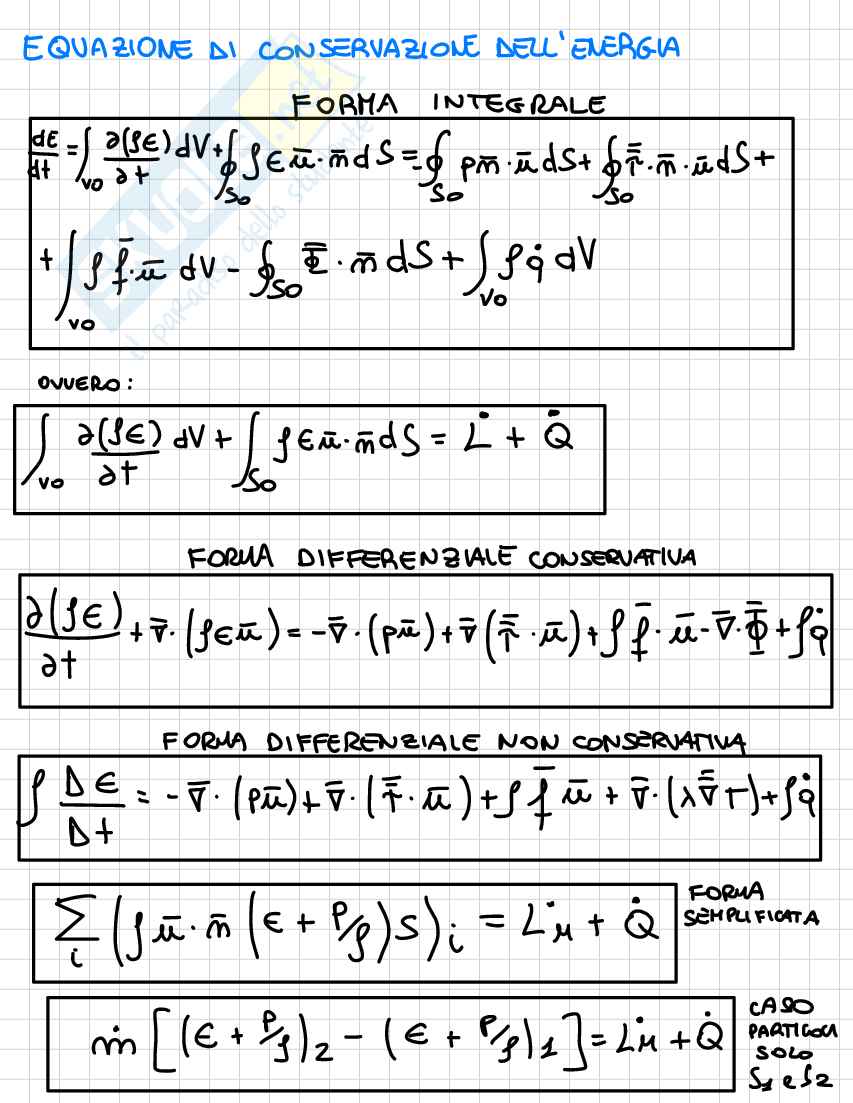 EQUAZIONE DI CONSERVAZIONE DELL'ENERGIA
FORMA INTEGRALE
dE/dt = ∫_V0 ∂(ρϵ)/∂t dV + ∮_S0 ρϵ ū·n̄ dS = -∮_S0 p n̄·ū dS + ∮_S0 τ̿·n̄·ū dS +
+ ∫_V0 ρ f̄·ū dV - ∮_S0 Φ̿·n̄ dS + ∫_V0 ρ q̇ dV
OVVERO:
∫_V0 ∂(ρϵ)/∂t dV + ∫_S0 ρϵ ū·n̄ dS = L̇ + Q̇
FORMA DIFFERENZIALE CONSERVATIVA
∂(ρϵ)/∂t + ∇̄·(ρϵū) = -∇̄·(pū) + ∇̄(τ̿·ū) + ρ f̄·ū - ∇̄·Φ̿ + ρq̇
FORMA DIFFERENZIALE NON CONSERVATIVA
ρ Dϵ/Dt = -∇̄·(pū) + ∇̄·(τ̿·ū) + ρ f̄ ū + ∇̄·(λ∇̿T) + ρq̇
∑_i (ρ ū·n̄ (ϵ + p/ρ) S)_i = L̇μ + Q̇
FORMA
SEMPLIFICATA
ṁ [(ϵ + p/ρ)_2 - (ϵ + p/ρ)_1] = L̇μ + Q̇
CASO
PARTICOLA
SOLO
S1 e S2
SKUOLA.net
il paradiso dello studente